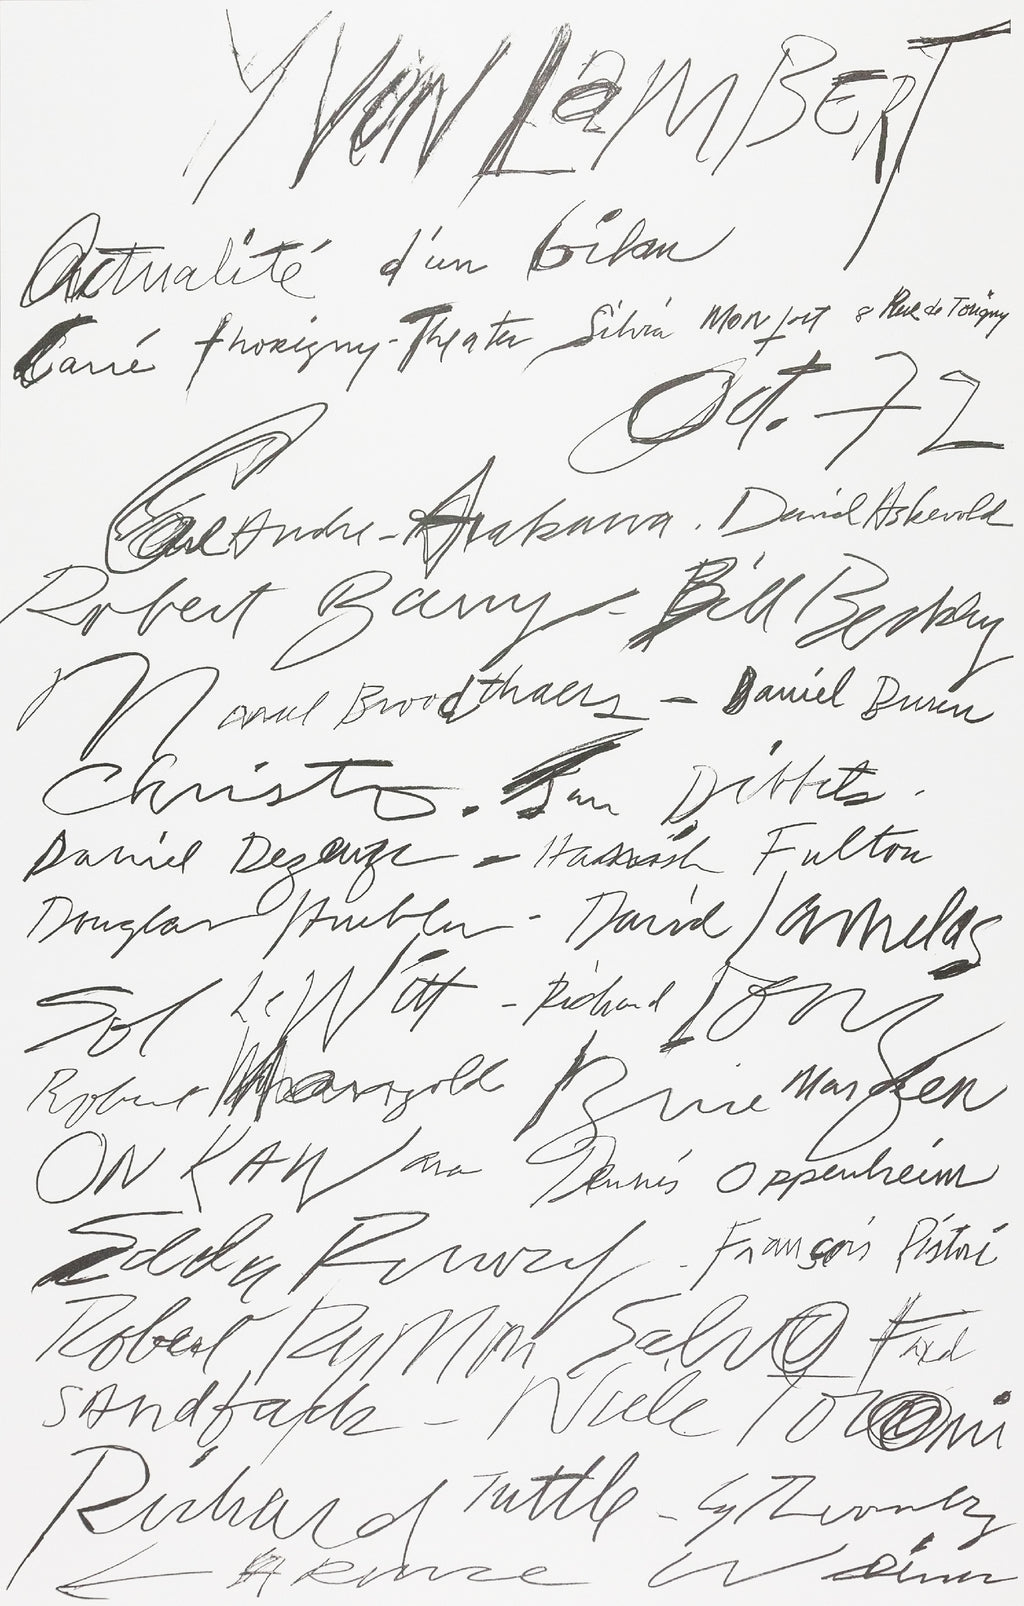 YVON LAMBERT
Actualité d'un bilan
Carré Thorigny-Theater Silvia Monfort 8 Rue de Torigny
Oct. 72
Carl Andre - Arakawa. David Askevold
Robert Barry - Bill Beckley
Marcel Broodthaers - Daniel Buren
Christo. Jan Dibbets.
Daniel Dezeuze - Hamish Fulton
Douglas Huebler - David Lamelas
Sol LeWitt - Richard Long
Robert Mangold Brice Marden
ON KAWara Dennis Oppenheim
Edda Renouf. François Pistri
Robert Ryman Salvo Fred
SAndback - Niele Toroni
Richard Tuttle - Cy Twombly
LAwrence Weiner